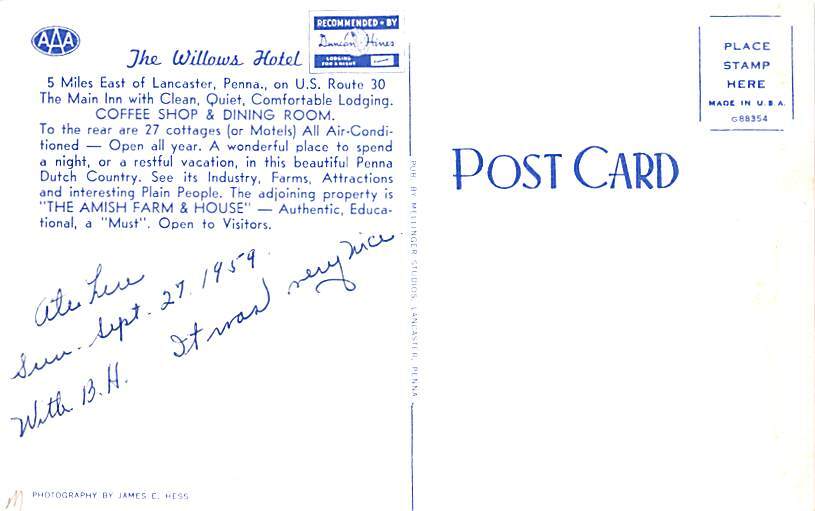 AAA
The Willows Hotel
RECOMMENDED • BY
Duncan Hines
LODGING
FOR A NIGHT
5 Miles East of Lancaster, Penna., on U.S. Route 30
The Main Inn with Clean, Quiet, Comfortable Lodging.
COFFEE SHOP & DINING ROOM.
To the rear are 27 cottages (or Motels) All Air-Condi-
tioned — Open all year. A wonderful place to spend
a night, or a restful vacation, in this beautiful Penna
Dutch Country. See its Industry, Farms, Attractions
and interesting Plain People. The adjoining property is
"THE AMISH FARM & HOUSE" — Authentic, Educa-
tional, a "Must". Open to Visitors.
Ate here
Sun. Sept. 27. 1959.
With B.H. It was very nice.
M
PHOTOGRAPHY BY JAMES E. HESS
PUB. BY MELLINGER STUDIOS, LANCASTER, PENNA.
POST CARD
PLACE
STAMP
HERE
MADE IN U.S.A.
G88354